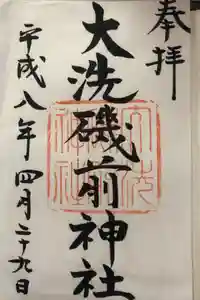 奉拝
大洗磯前神社
平成八年四月二十九日